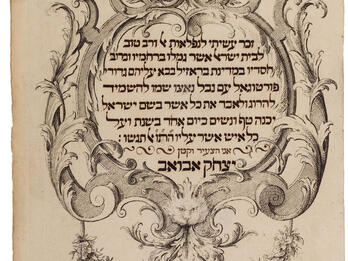 זכר עשיתי לנפלאות א ורב טוב
לבית ישרא אשר גמלו ברחמיו וכרוב
חסדיו במדינת בראזיל בבא עליהם גדודי
פורטוגאל עם נבל נאצו שמו להשמיד
להרוג ולאבד את כל אשר בשם ישראל
יכנה טף ונשים כיום אחד בשנת ויעל
כל איש אשר עליו התו א תגשו :
אני הצעיר וקטן
יצחק אבואב